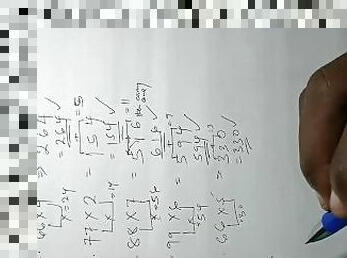 × 4 ⇒ 264
x=24 = 264 ✓
77 × 2 = 154 = 5
x=14 = 154 ✓
88 × 7 = = 11
x=56 = 616 ✓
99 × 6 = 594
x=54 594 ✓
66 × 5 = 330
x=30 = 330 ✓